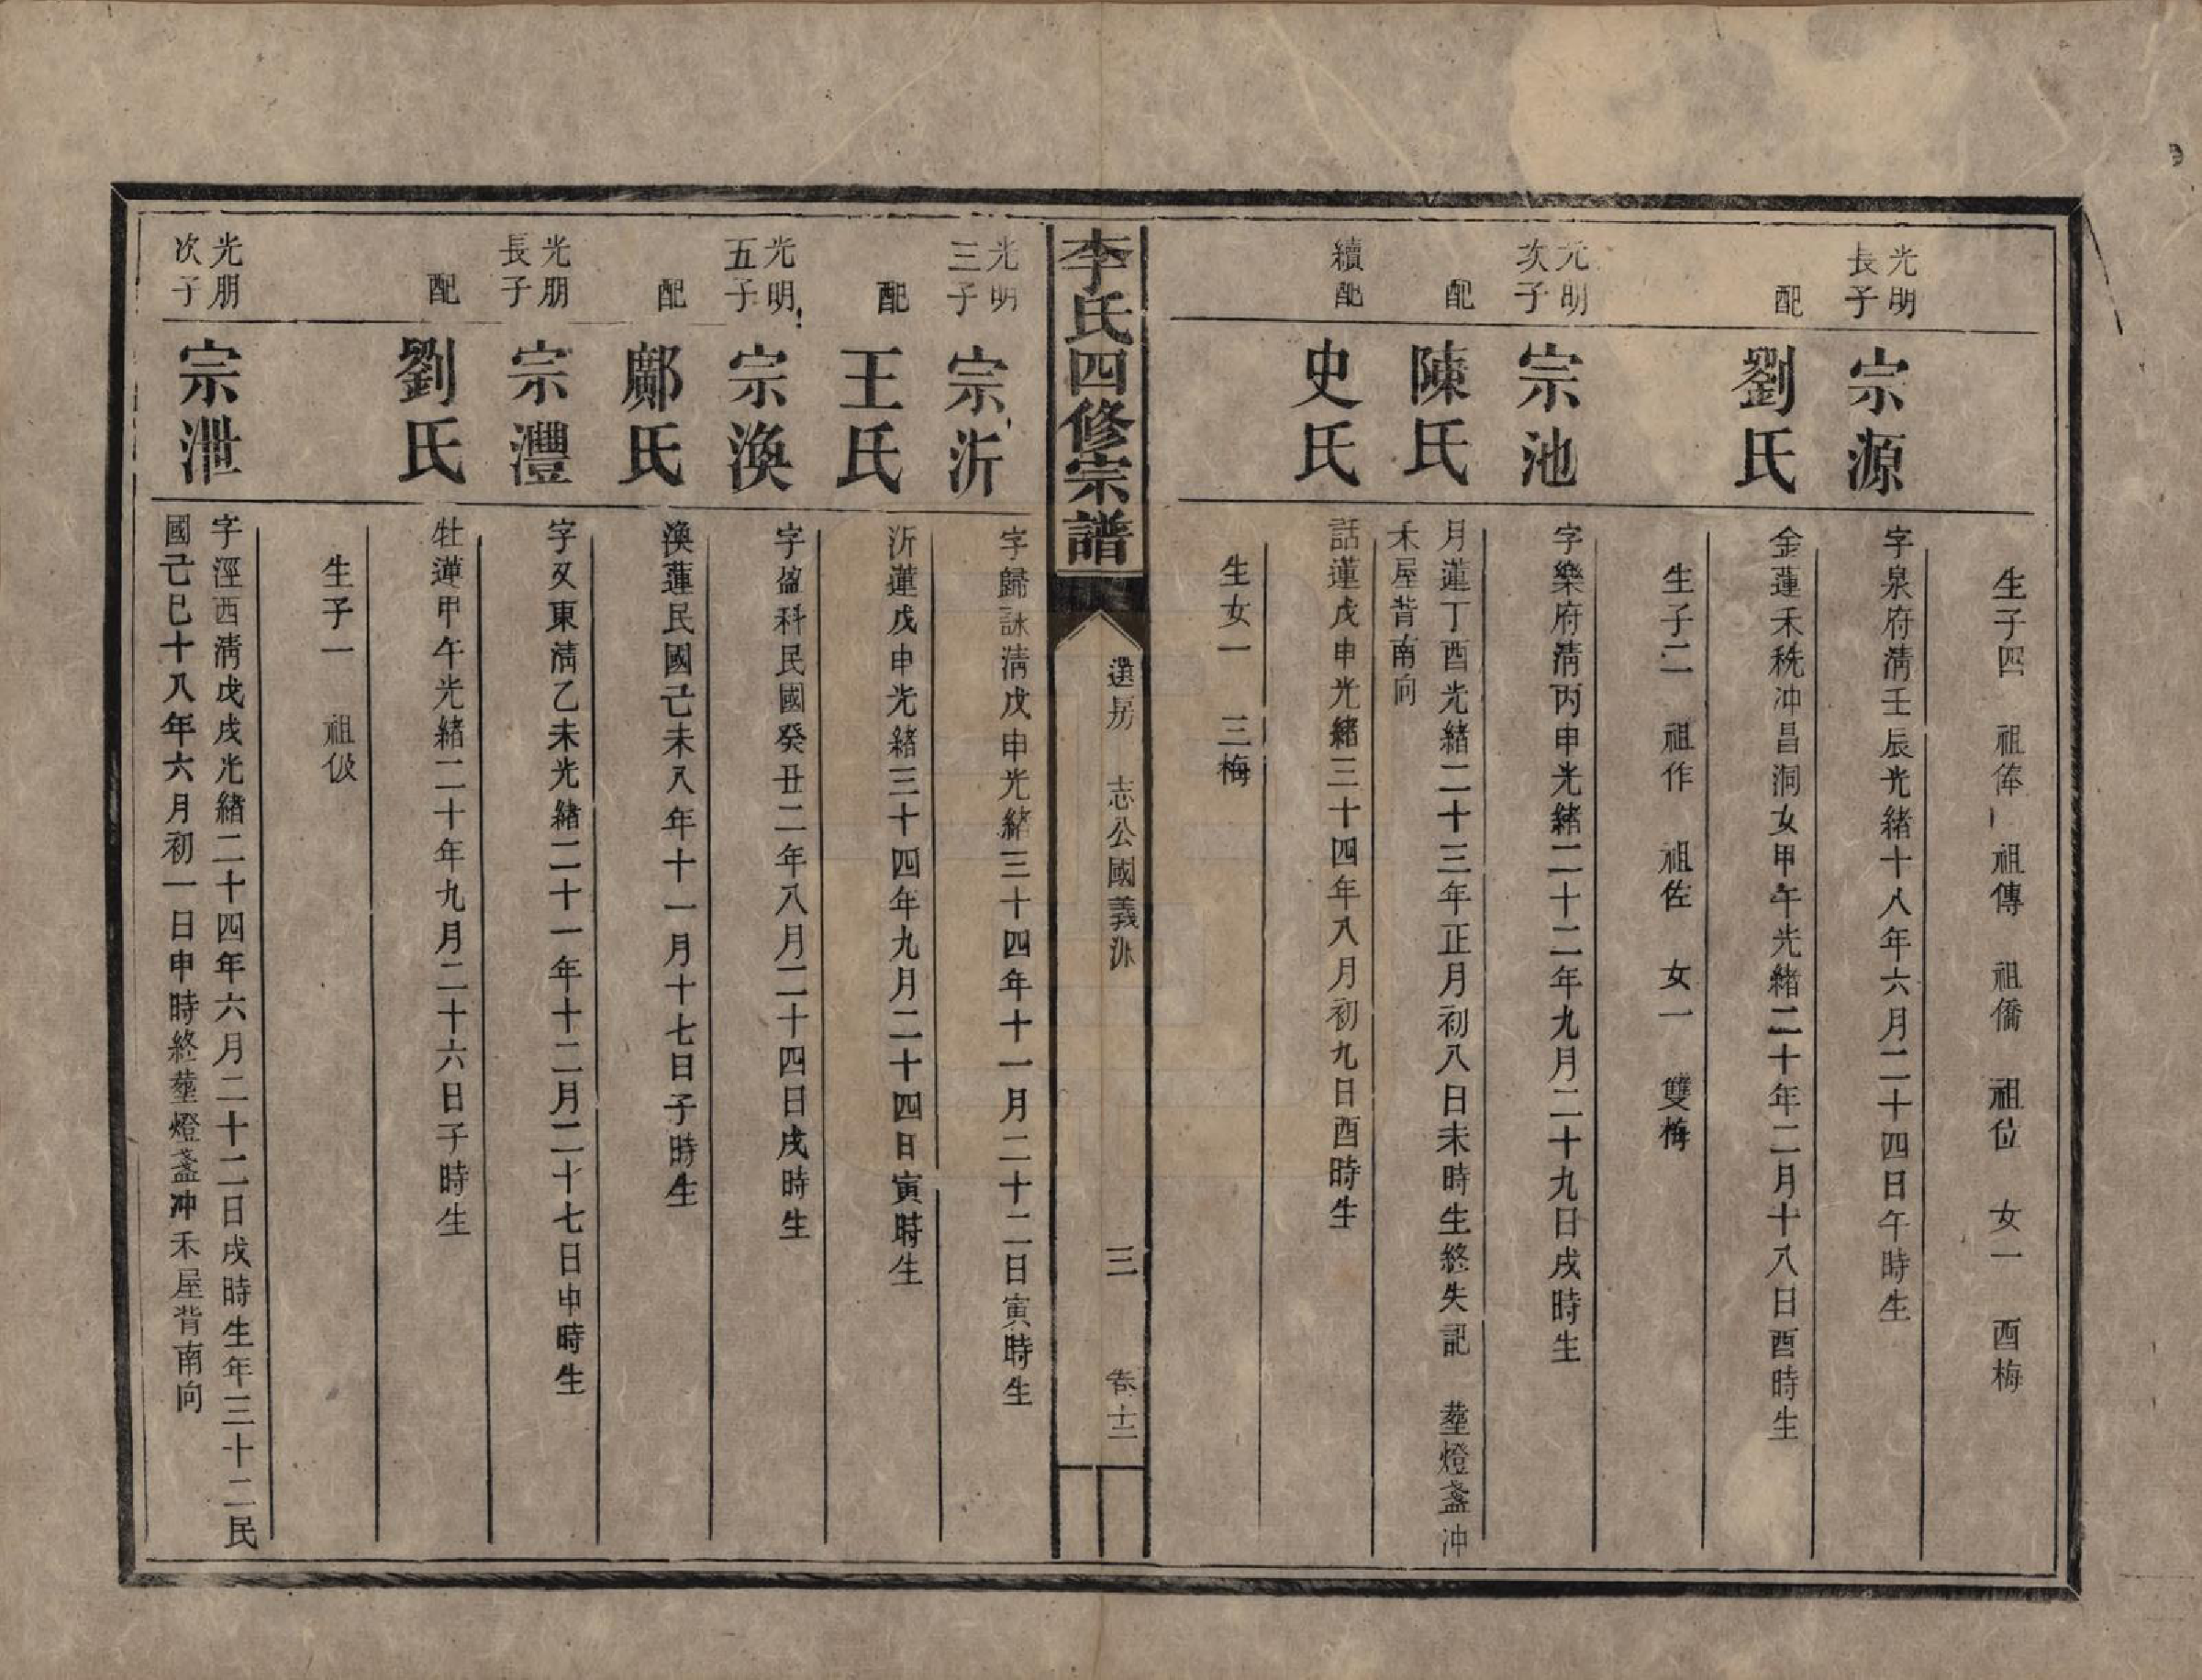 生子四 祖俸 祖傳 祖僑 祖位 女一 酉梅
光明
長子
宗源
字泉府淸壬辰光緒十八年六月二十四日午時生
配
劉氏
金蓮禾秈冲昌洞女甲午光緒二十年二月十八日酉時生
生子二 祖作 祖佐 女一 雙梅
光明
次子
宗池
字樂府淸丙申光緒二十二年九月二十九日戌時生
配
陳氏
月蓮丁酉光緒二十三年正月初八日未時生終失記 塟燈盞冲
禾屋背南向
續配
史氏
話蓮戊申光緒三十四年八月初九日酉時生
生女一 三梅
李氏四修宗譜
選房 志公國義派
三
卷十二
光明
三子
宗沂
字歸詠淸戊申光緒三十四年十一月二十二日寅時生
配
王氏
沂蓮戊申光緒三十四年九月二十四日寅時生
光明
五子
宗渙
字盈科民國癸丑二年八月二十四日戌時生
配
鄺氏
渙蓮民國己未八年十一月十七日子時生
光朋
長子
宗灃
字又東淸乙未光緒二十一年十二月二十七日申時生
配
劉氏
牡蓮甲午光緒二十年九月二十六日子時生
生子一 祖伋
光朋
次子
宗泄
字涇西淸戊戌光緒二十四年六月二十二日戌時生年三十二民
國己巳十八年六月初一日申時終塟燈盞冲禾屋背南向